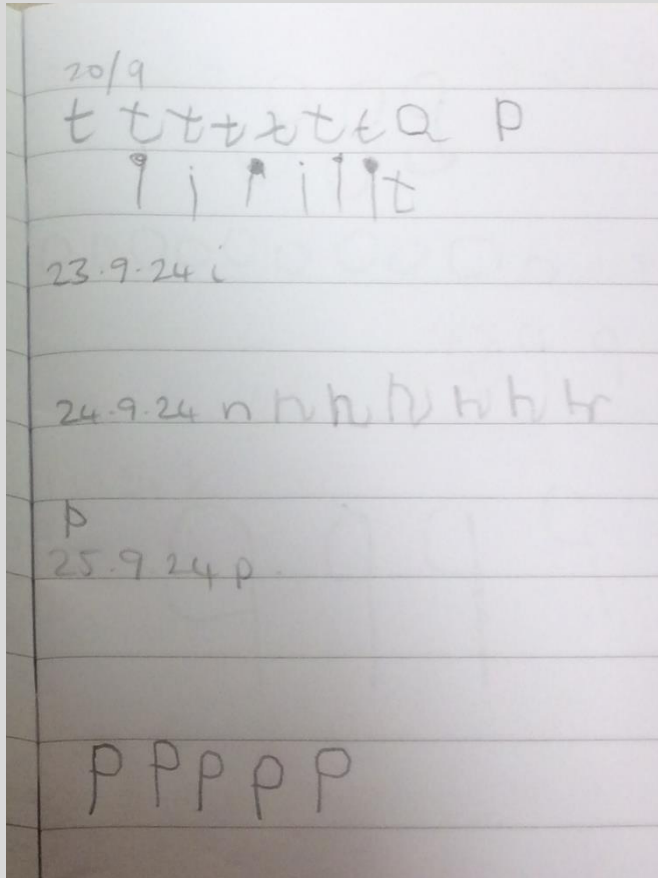 20/9
t t t t t t t a p
i i i i i i t
23.9.24 i
24.9.24 n n n n n n n
p
25.9.24 p
p p p p p